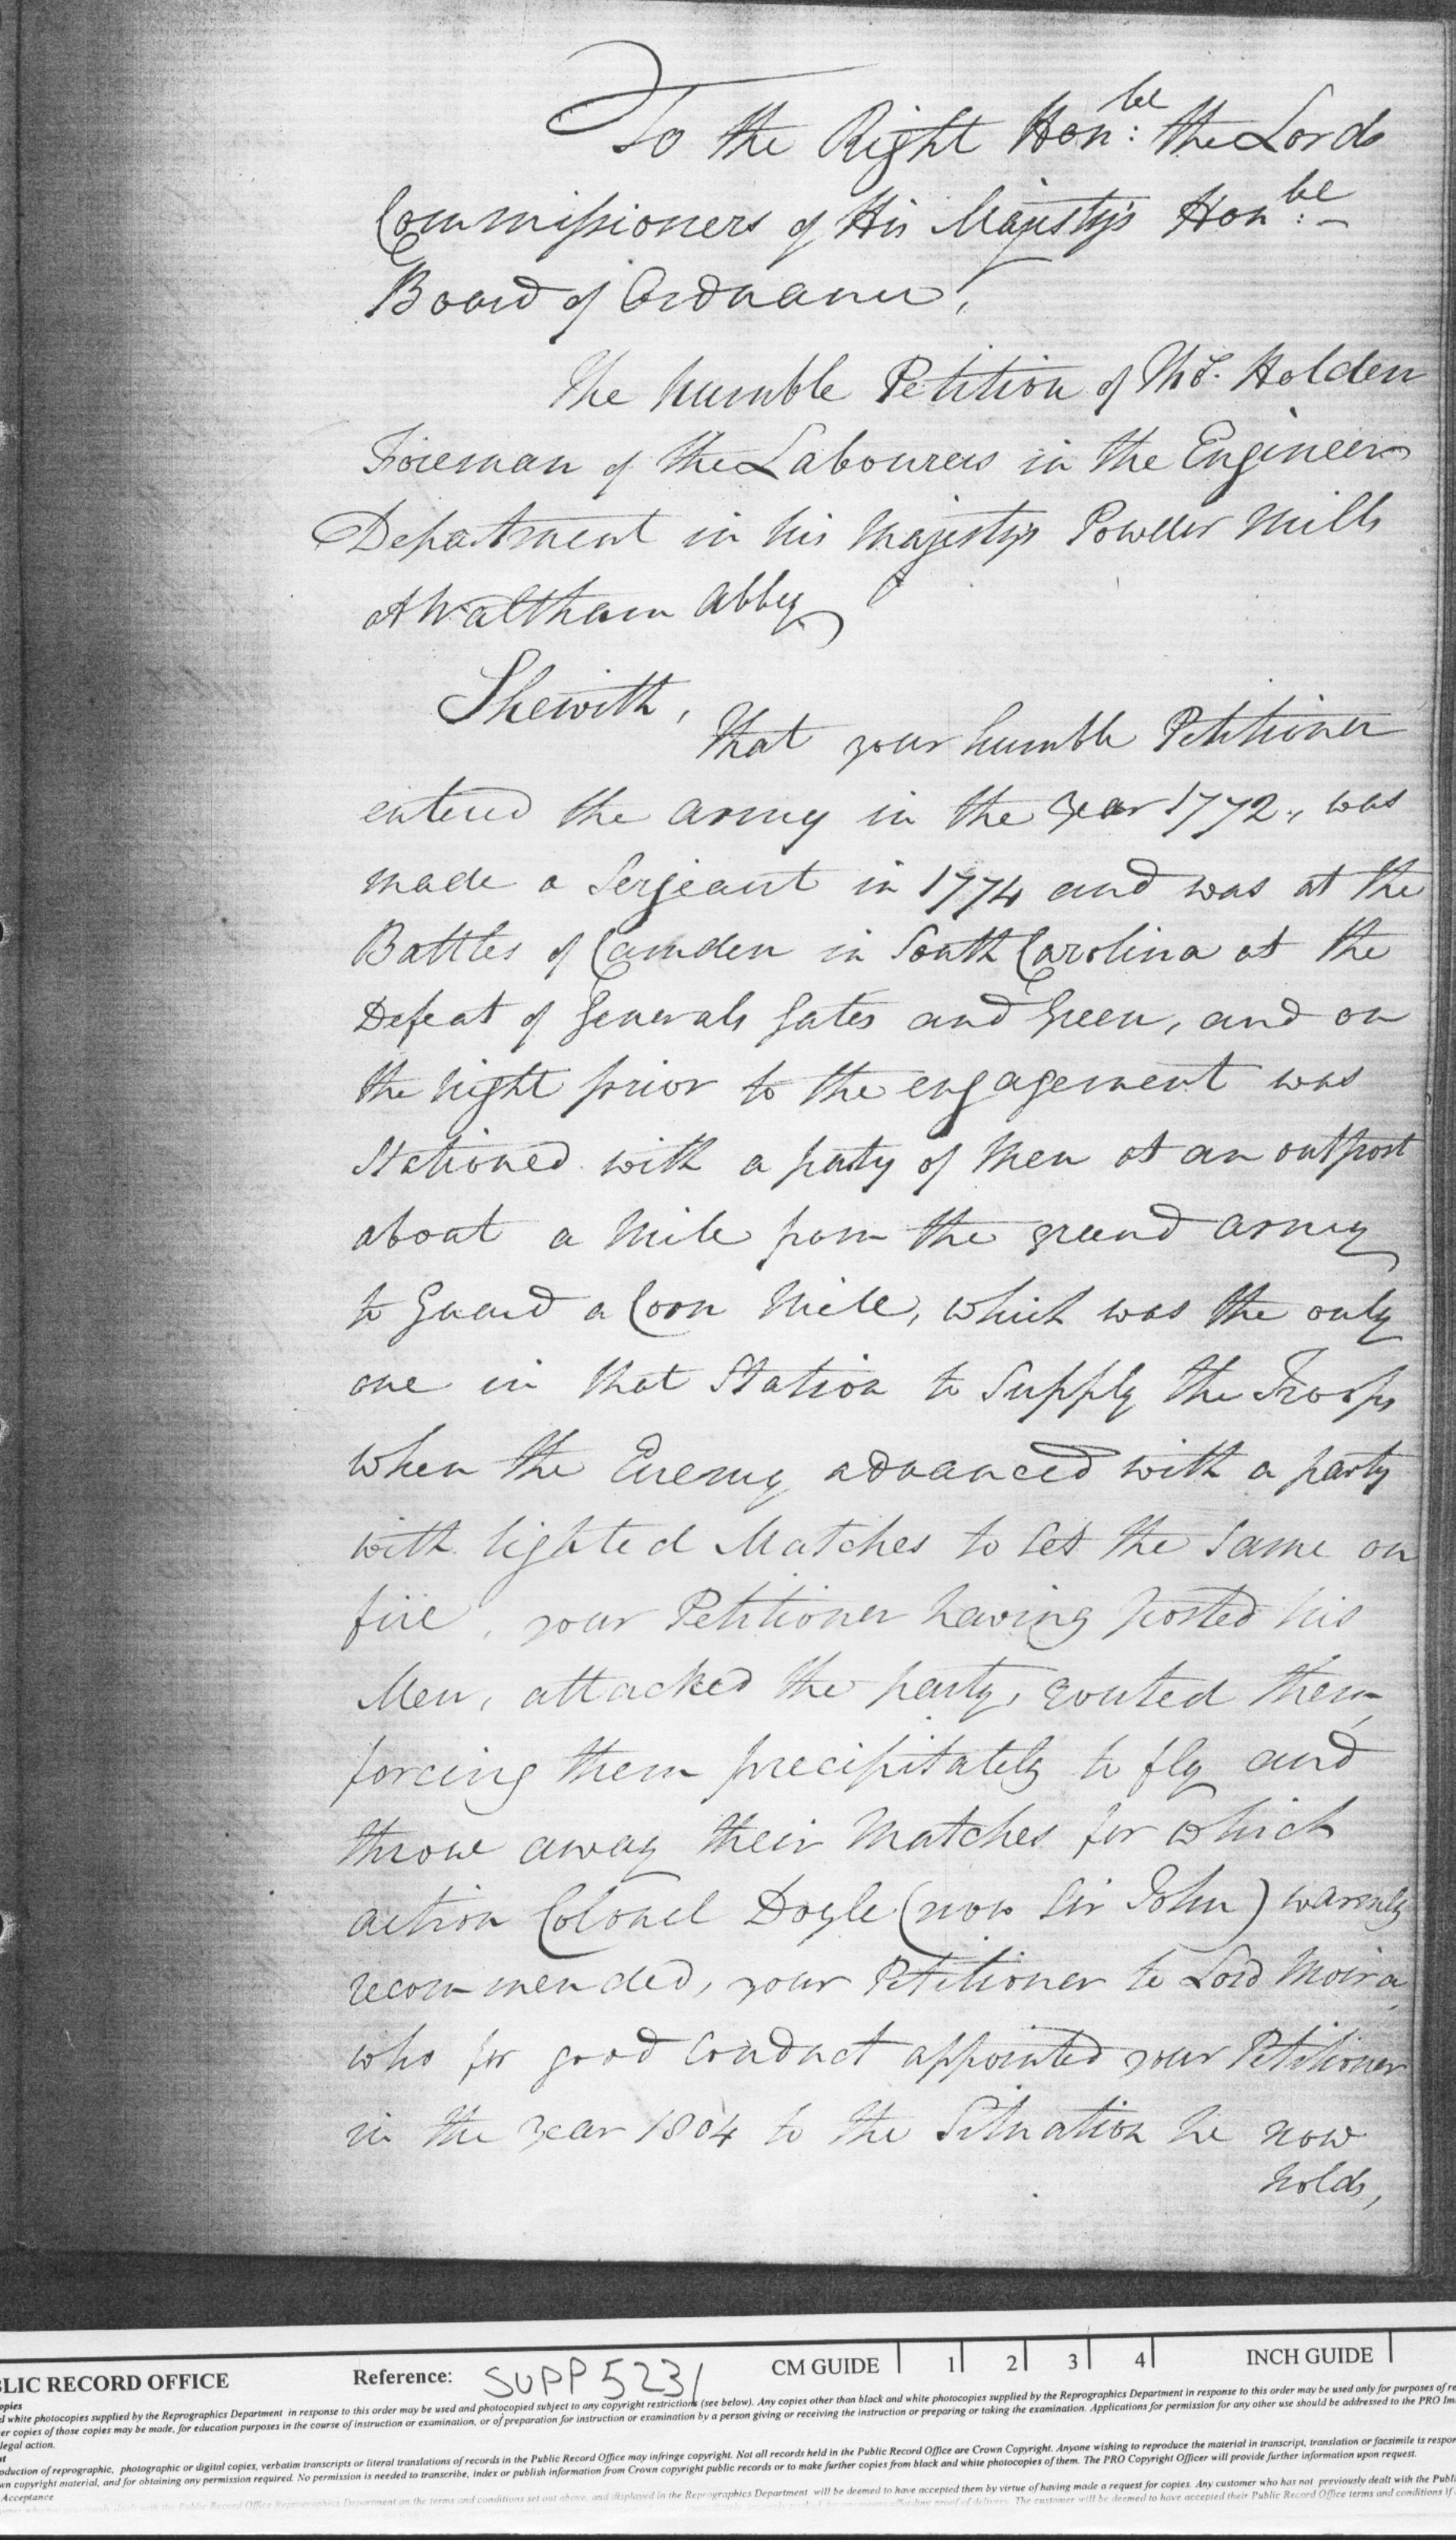 To the Right Hon:ble the Lords
Commissioners of His Majesty's Honble:-
Board of Ordnance,
The humble Petition of Thos. Holden
Foreman of the Labourers in the Engineers
Department in his Majestys Powder Mills
at Waltham Abbey
Shewith,
That your humble Petitioner
entered the army in the year 1772, was
made a Serjeant in 1774 and was at the
Battles of Camden in South Carolina at the
Defeat of Generals Gates and Green, and on
the night prior to the engagement was
Stationed with a party of Men at an outpost
about a Mile from the grand army
to Guard a Corn Mill, which was the only
one in that Station to Supply the Troops
when the Enemy advanced with a party
with lighted Matches to Set the Same on
fire, your Petitioner having posted his
Men, attacked the party, routed them
forcing them precipitately to fly and
throw away their Matches for which
action Colonel Doyle (now Sir John) warmly
recommended, your Petitioner to Lord Moira
who for good Conduct appointed your Petitioner
in the year 1804 to the Situation he now
holds,
BLIC RECORD OFFICE
Reference: SUPP 5231
CM GUIDE 1 2 3 4
INCH GUIDE
opies
d white photocopies supplied by the Reprographics Department in response to this order may be used and photocopied subject to any copyright restrictions (see below). Any copies other than black and white photocopies supplied by the Reprographics Department in response to this order may be used only for purposes of re
er copies of those copies may be made, for education purposes in the course of instruction or examination, or of preparation for instruction or examination by a person giving or receiving the instruction or preparing or taking the examination. Applications for permission for any other use should be addressed to the PRO Im
legal action.
oduction of reprographic, photographic or digital copies, verbatim transcripts or literal translations of records in the Public Record Office may infringe copyright. Not all records held in the Public Record Office are Crown Copyright. Anyone wishing to reproduce the material in transcript, translation or facsimile is respon
wn copyright material, and for obtaining any permission required. No permission is needed to transcribe, index or publish information from Crown copyright public records or to make further copies from black and white photocopies of them. The PRO Copyright Officer will provide further information upon request.
Acceptance
Reprographics Department on the terms and conditions set out above, and displayed in the Reprographics Department will be deemed to have accepted them by virtue of having made a request for copies. Any customer who has not previously dealt with the Publi
The customer will be deemed to have accepted their Public Record Office terms and conditions if